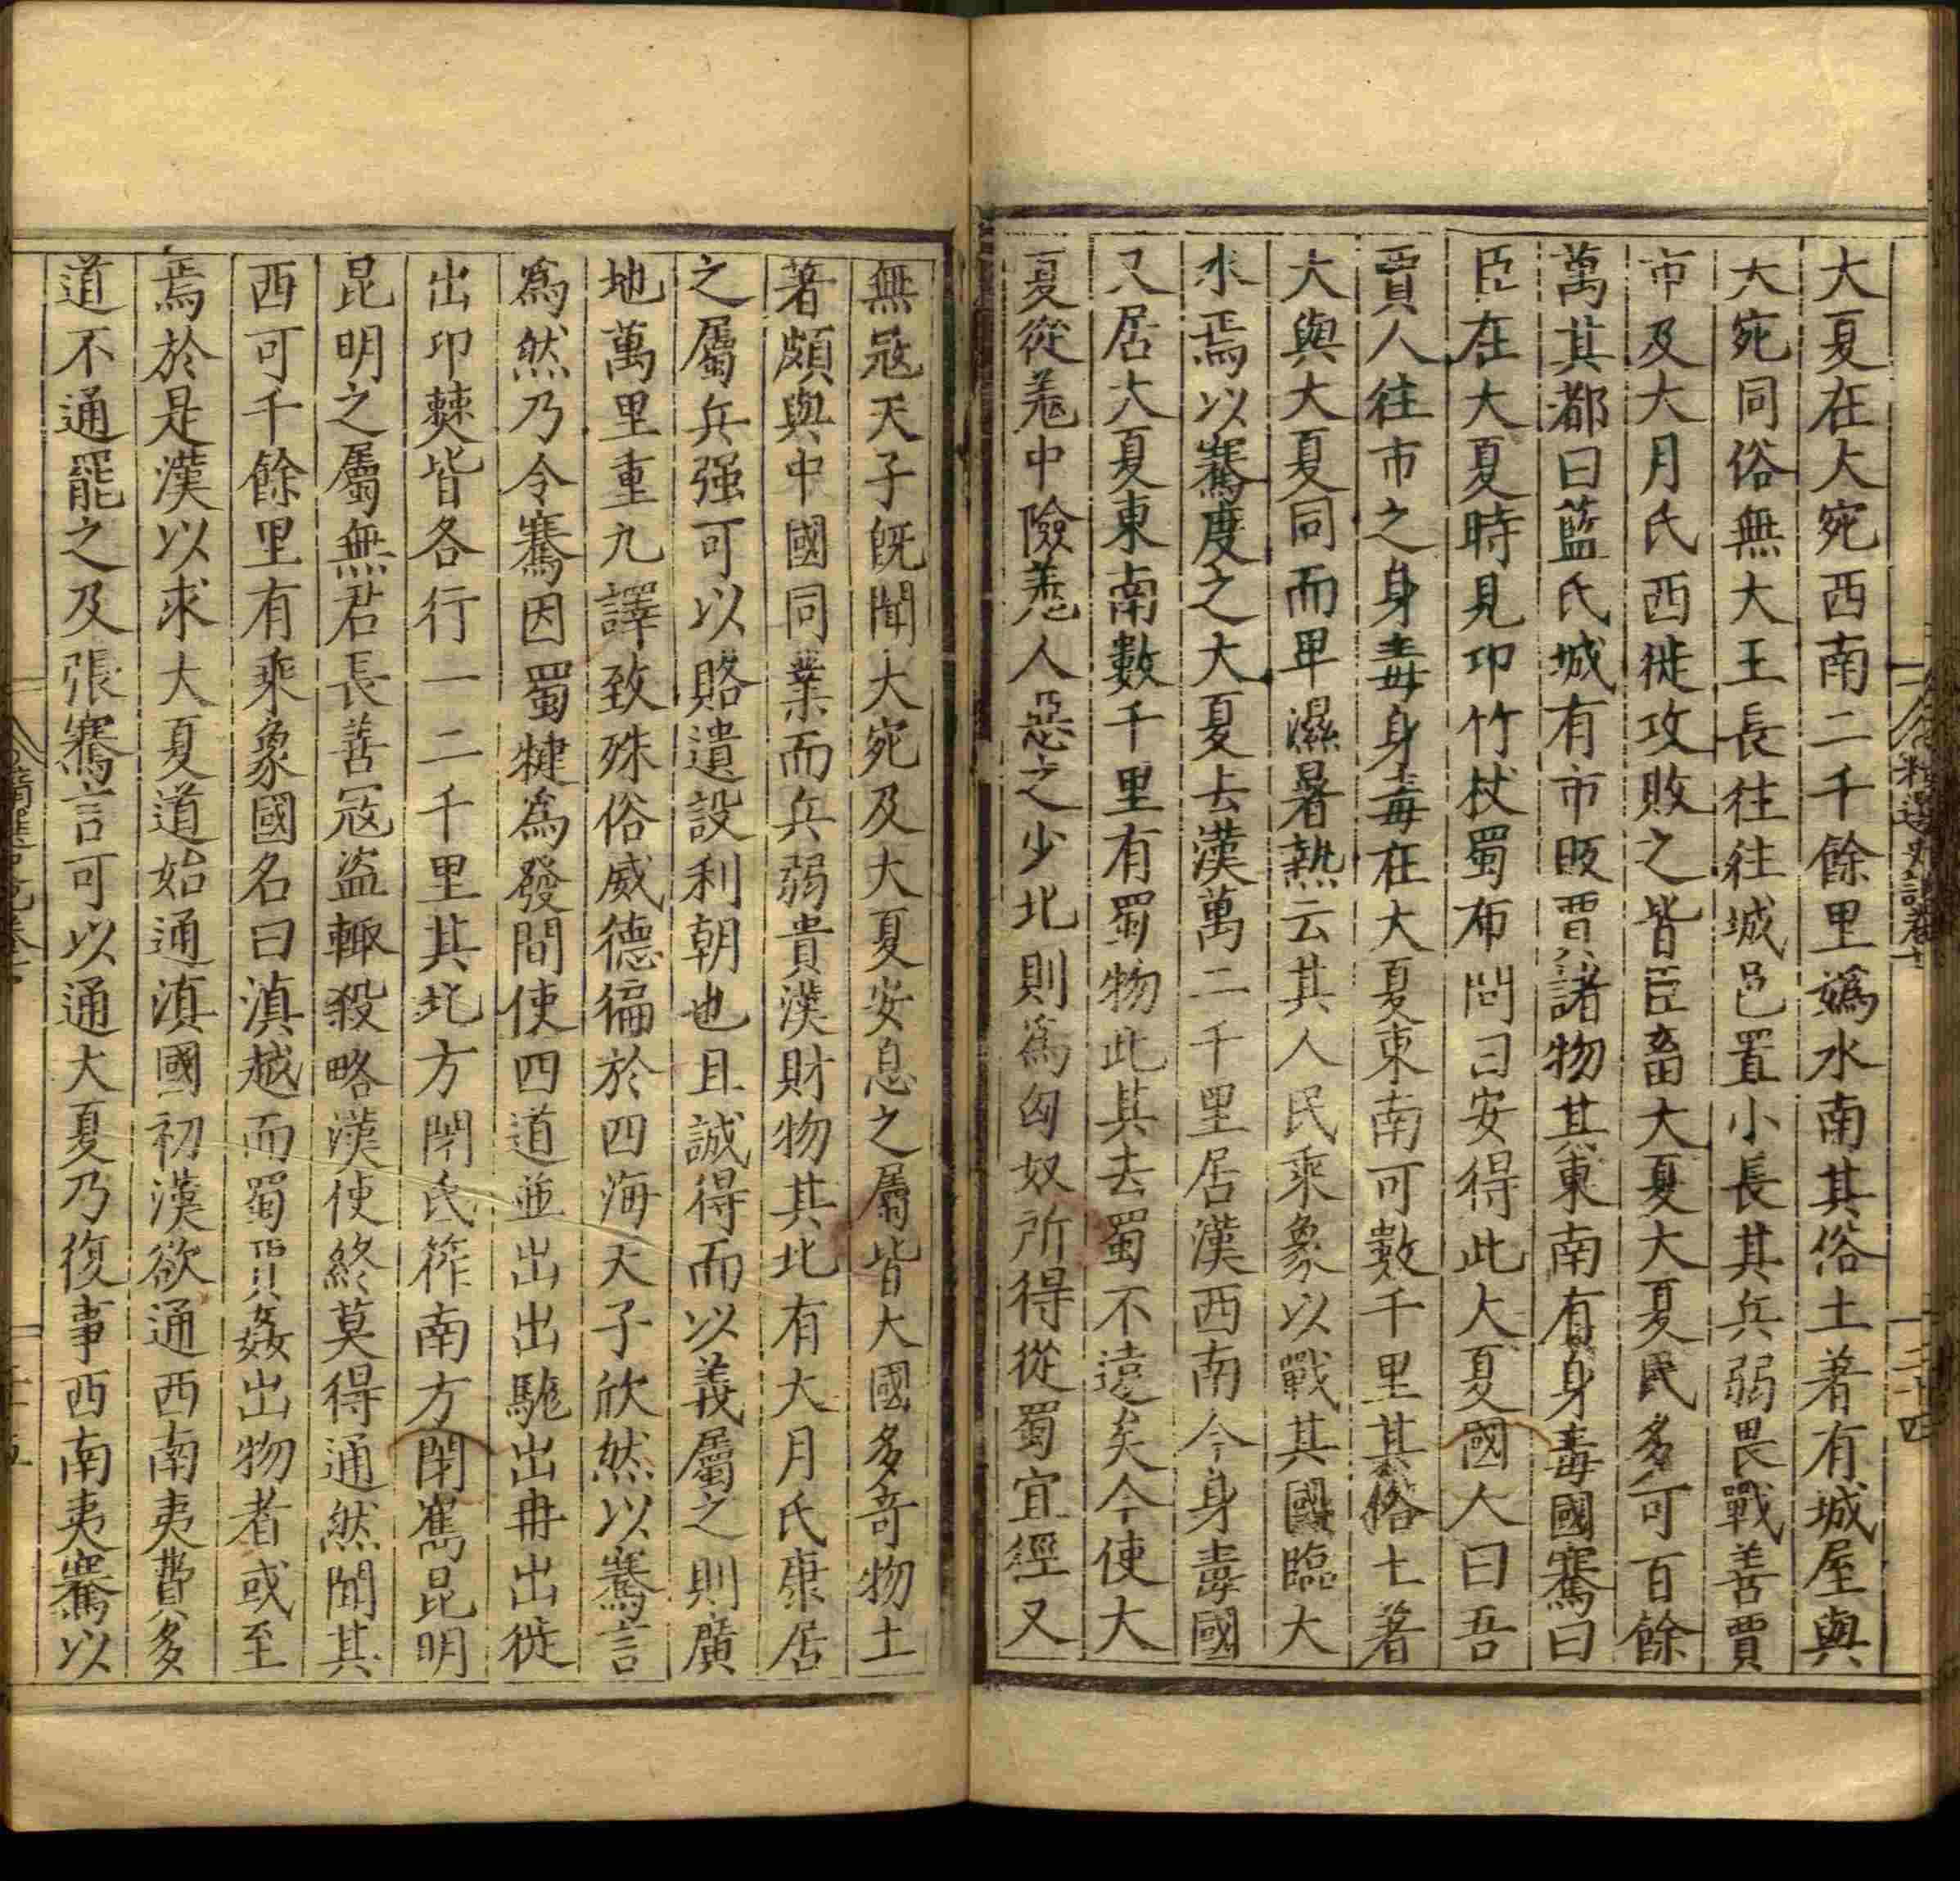 大夏在大宛西南二千餘里嬀水南其俗土著有城屋與
大宛同俗無大王長往往城邑置小長其兵弱畏戰善賈
市及大月氏西徙攻敗之皆臣畜大夏大夏民多可百餘
萬其都曰藍氏城有市販賈諸物其東南有身毒國騫曰
臣在大夏時見卬竹杖蜀布問曰安得此大夏國人曰吾
賈人往市之身毒身毒在大夏東南可數千里其俗土著
大與大夏同而卑濕暑熱云其人民乘象以戰其國臨大
水焉以騫度之大夏去漢萬二千里居漢西南今身毒國
又居大夏東南數千里有蜀物此其去蜀不遠矣今使大
夏從羗中險羗人惡之少北則爲匈奴所得從蜀宜徑又
精選史記卷十
二十四
無宼天子既聞大宛及大夏安息之屬皆大國多奇物土
著頗與中國同業而兵弱貴漢財物其北有大月氏康居
之屬兵强可以賂遺設利朝也且誠得而以義屬之則廣
地萬里重九譯致殊俗威德徧於四海天子欣然以騫言
爲然乃令騫因蜀犍爲發間使四道並出出駹出冉出徙
出卬僰皆各行一二千里其北方閉氐筰南方閉嶲昆明
昆明之屬無君長善宼盜輙殺略漢使終莫得通然聞其
西可千餘里有乘象國名曰滇越而蜀賈姦出物者或至
焉於是漢以求大夏道始通滇國初漢欲通西南夷費多
道不通罷之及張騫言可以通大夏乃復事西南夷騫以